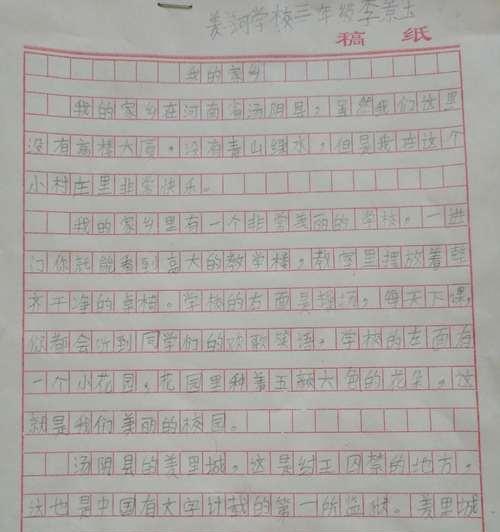 羑河学校三年级李景玉
稿 纸
我的家乡
我的家乡在河南省汤阴县，虽然我们这里
没有高楼大厦，没有青山绿水，但是我在这个
小村庄里非常快乐。
我的家乡里有一个非常美丽的学校，一进
门你就能看到高大的教学楼，教室里摆放着整
齐干净的桌椅。学校的右面是操场，每天下课，
你都会听到同学们的欢歌笑语，学校的左面有
一个小花园，花园里种着五颜六色的花朵，这
就是我们美丽的校园。
汤阴县的羑里城，这是纣王囚禁的地方，
这也是中国有文字记载的第一所监狱。羑里城